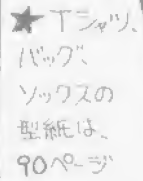 ★Tシャツ、
バッグ、
ソックスの
型紙は、
90ページ